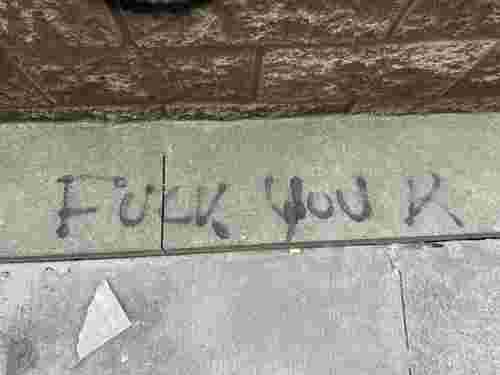 FUCK YOU K